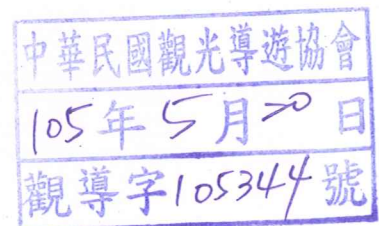 中華民國觀光導遊協會
105年5月20日
觀導字105344號